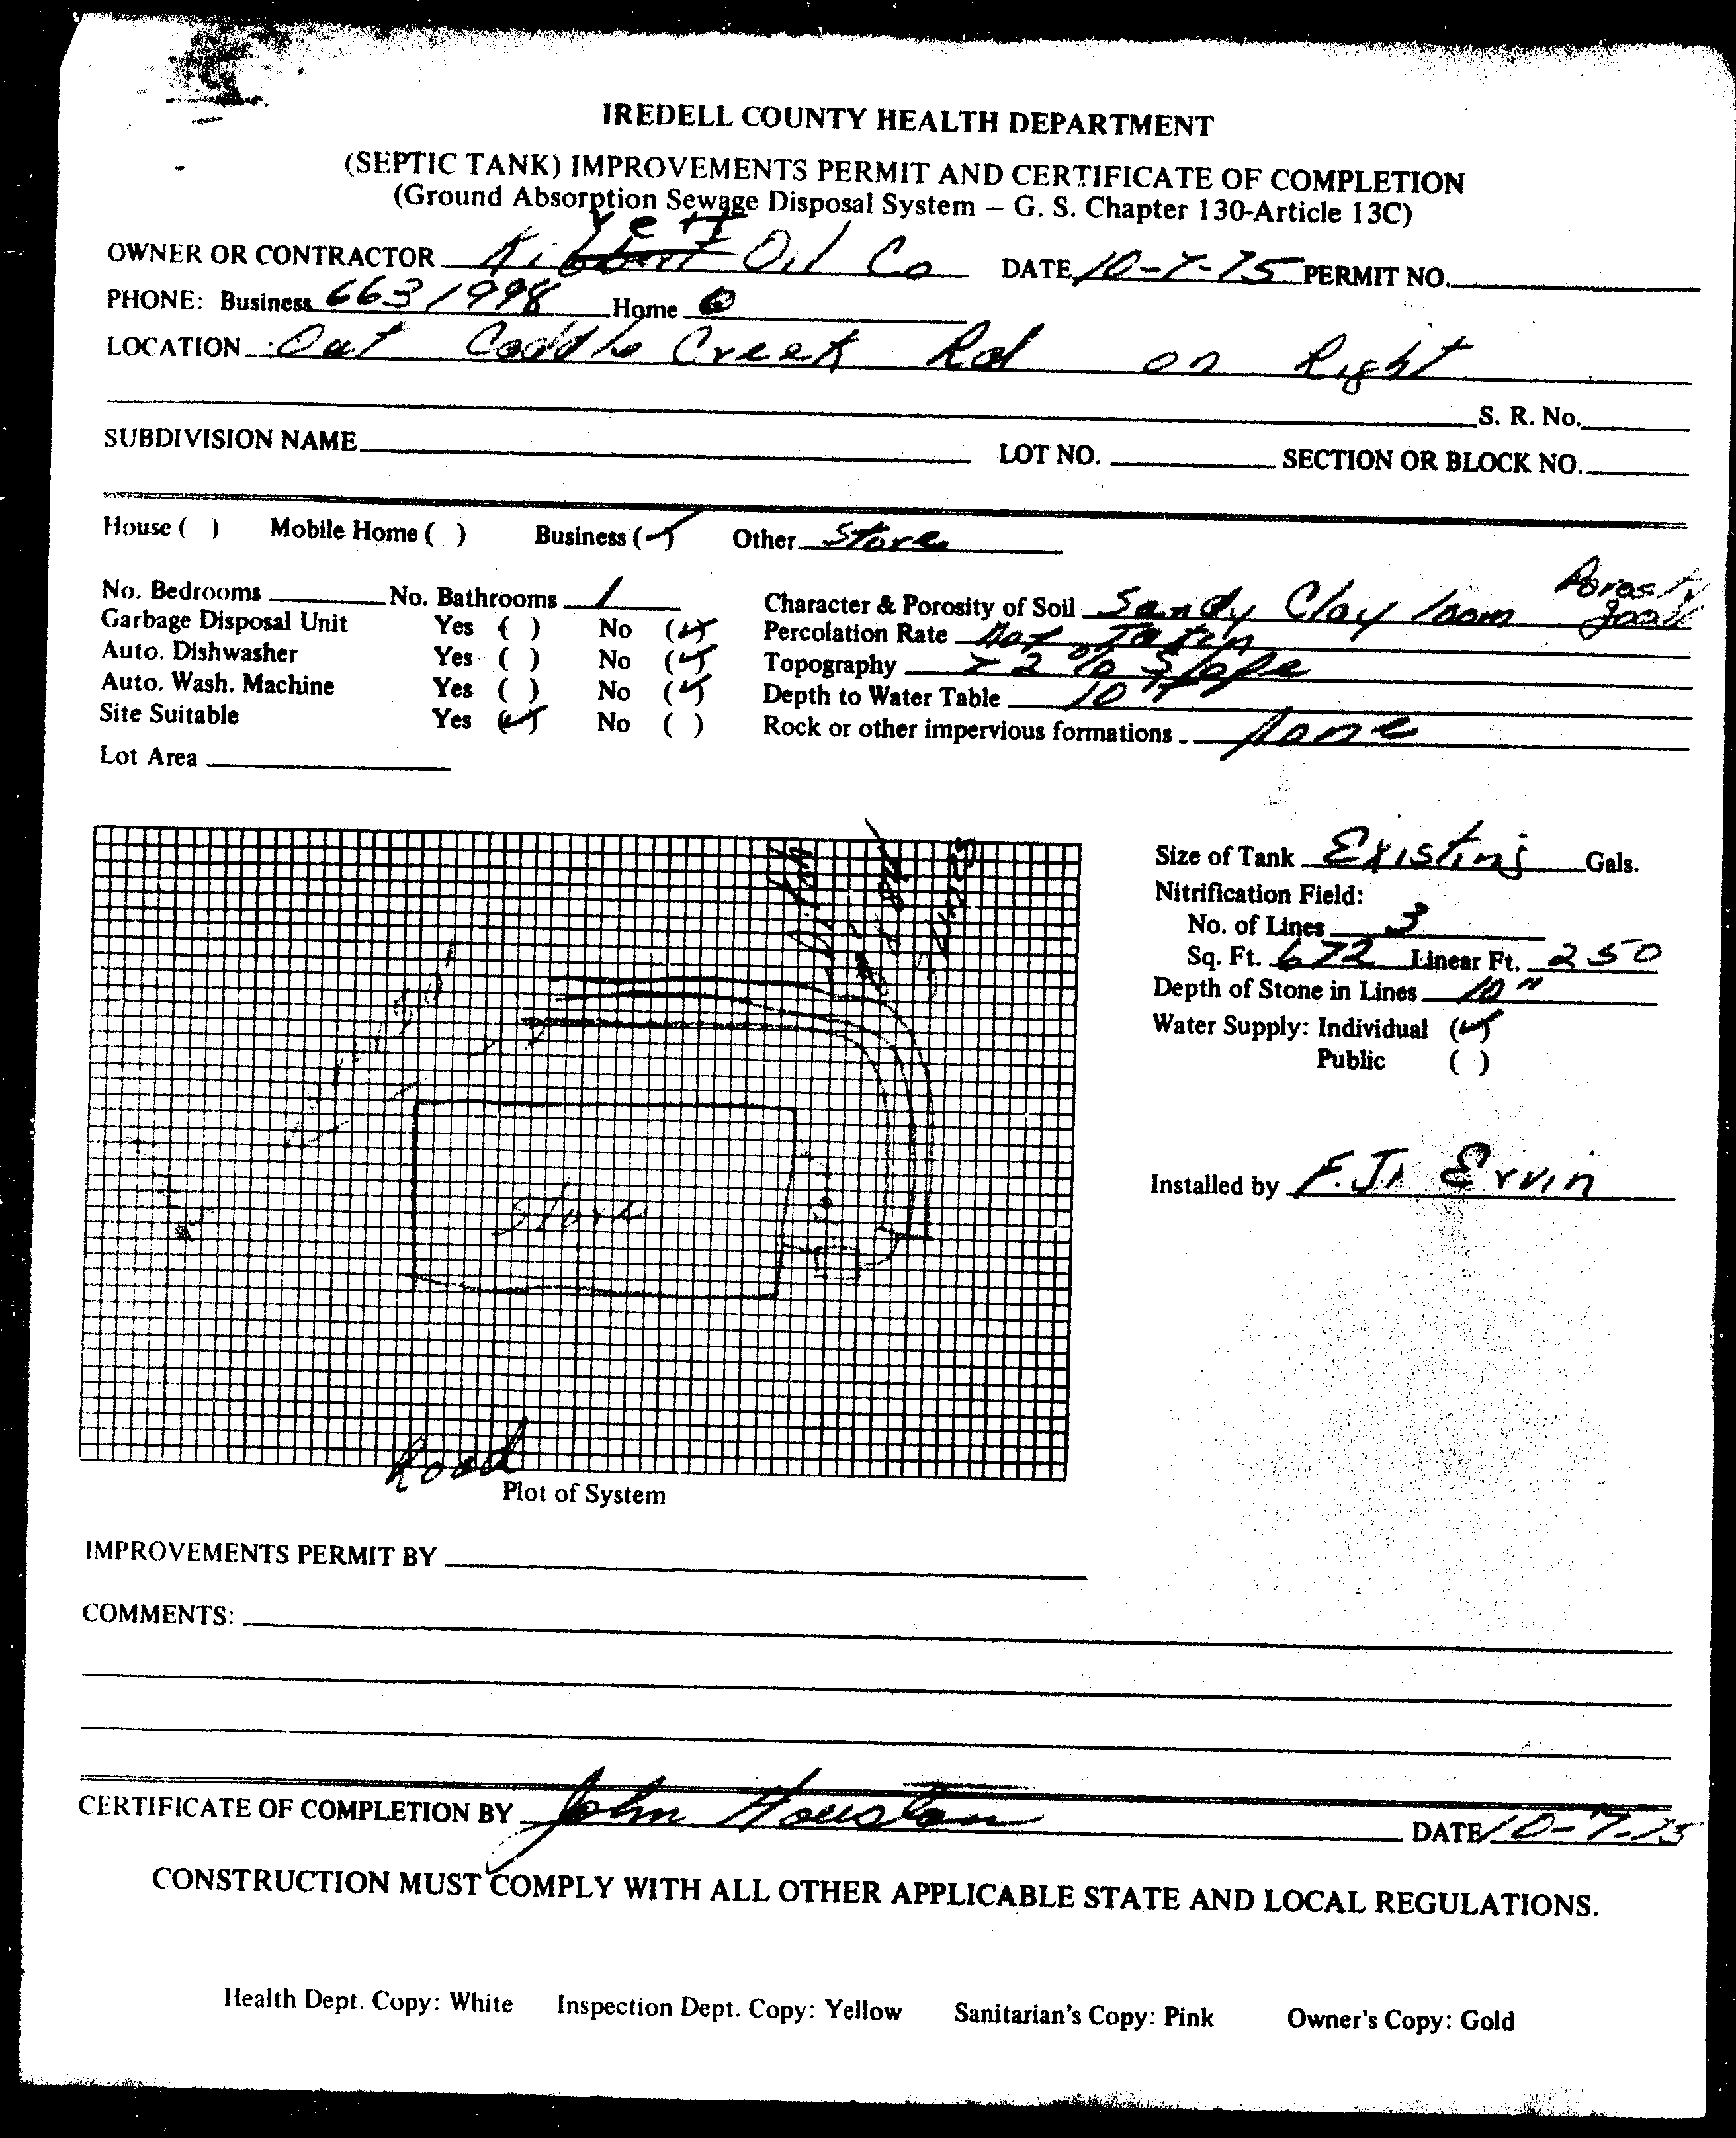 IREDELL COUNTY HEALTH DEPARTMENT
(SEPTIC TANK) IMPROVEMENTS PERMIT AND CERTIFICATE OF COMPLETION
(Ground Absorption Sewage Disposal System – G. S. Chapter 130-Article 13C)
OWNER OR CONTRACTOR Oil Co DATE 10-7-75 PERMIT NO.
PHONE: Business 663 1998 Home
LOCATION Out Coddle Creek Rd on Right
S. R. No.
SUBDIVISION NAME LOT NO. SECTION OR BLOCK NO.
House ( ) Mobile Home ( ) Business (✓) Other Store
No. Bedrooms No. Bathrooms 1 Character & Porosity of Soil Sandy Clay loam Porosity good
Garbage Disposal Unit Yes ( ) No (✓) Percolation Rate Not Taken
Auto. Dishwasher Yes ( ) No (✓) Topography 2% Slope
Auto. Wash. Machine Yes ( ) No (✓) Depth to Water Table 10'+
Site Suitable Yes (✓) No ( ) Rock or other impervious formations None
Lot Area
Size of Tank Existing Gals.
Nitrification Field:
No. of Lines 3
Sq. Ft. 672 Linear Ft. 250
Depth of Stone in Lines 10"
Water Supply: Individual (✓)
Public ( )
Installed by F. J. Ervin
Ditch
Store
Road
Plot of System
IMPROVEMENTS PERMIT BY
COMMENTS:
CERTIFICATE OF COMPLETION BY John Houston DATE 10-7-75
CONSTRUCTION MUST COMPLY WITH ALL OTHER APPLICABLE STATE AND LOCAL REGULATIONS.
Health Dept. Copy: White Inspection Dept. Copy: Yellow Sanitarian's Copy: Pink Owner's Copy: Gold